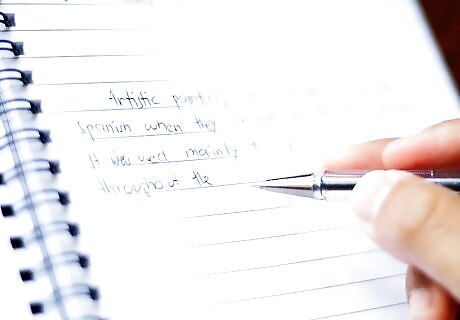 Artistic
Spanish when they
It was used mainly
throughout the